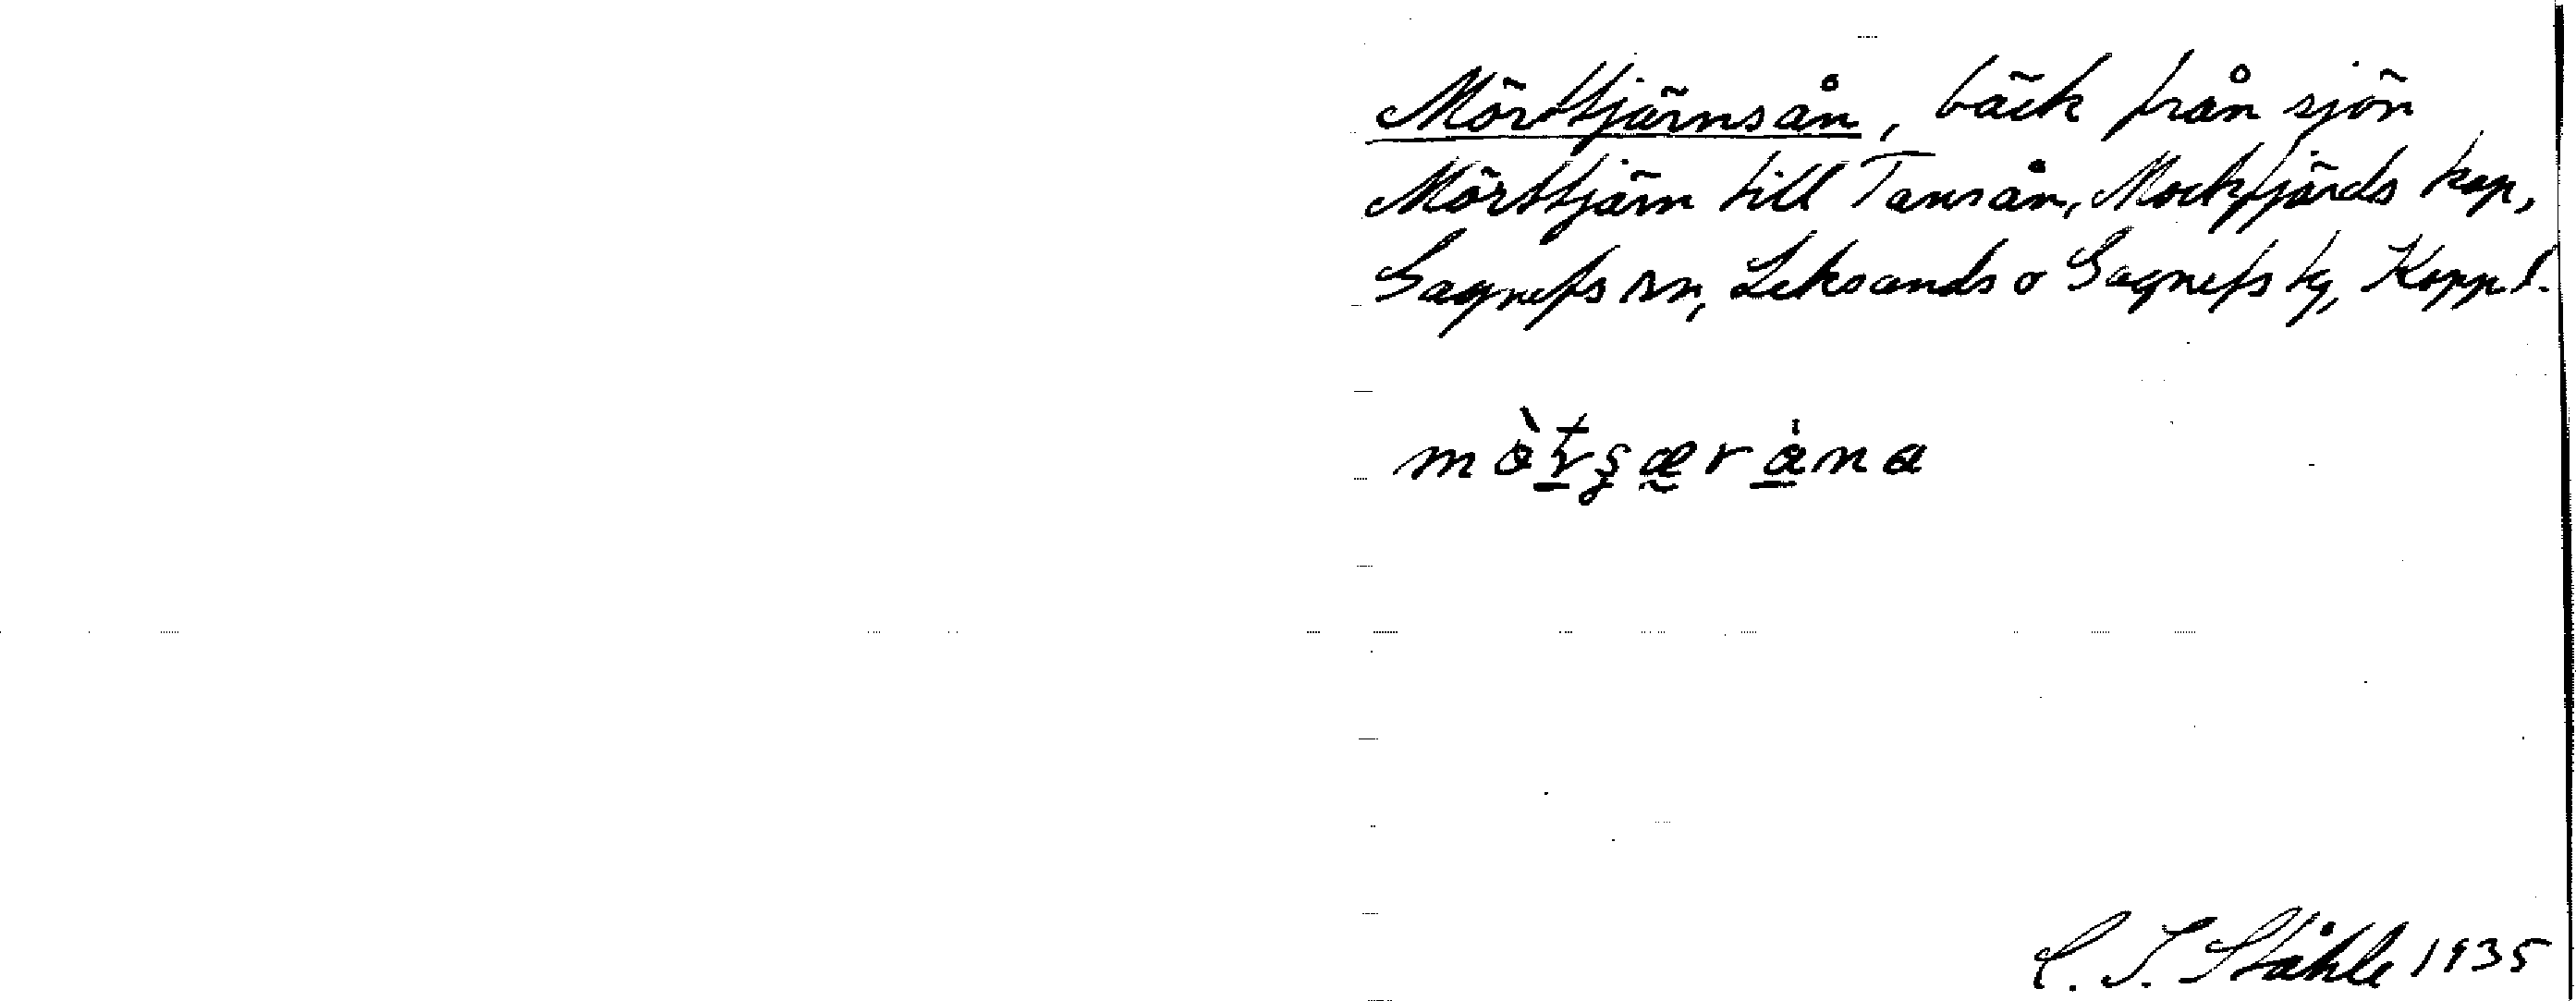 Mörttjärnsån, bäck från sjön
Mörttjärn till Tansån, Mockfjärds kap,
Gagnefs sn, Leksands o Gagnefs tg, Kopp. l.
C. I. Ståhle 1935